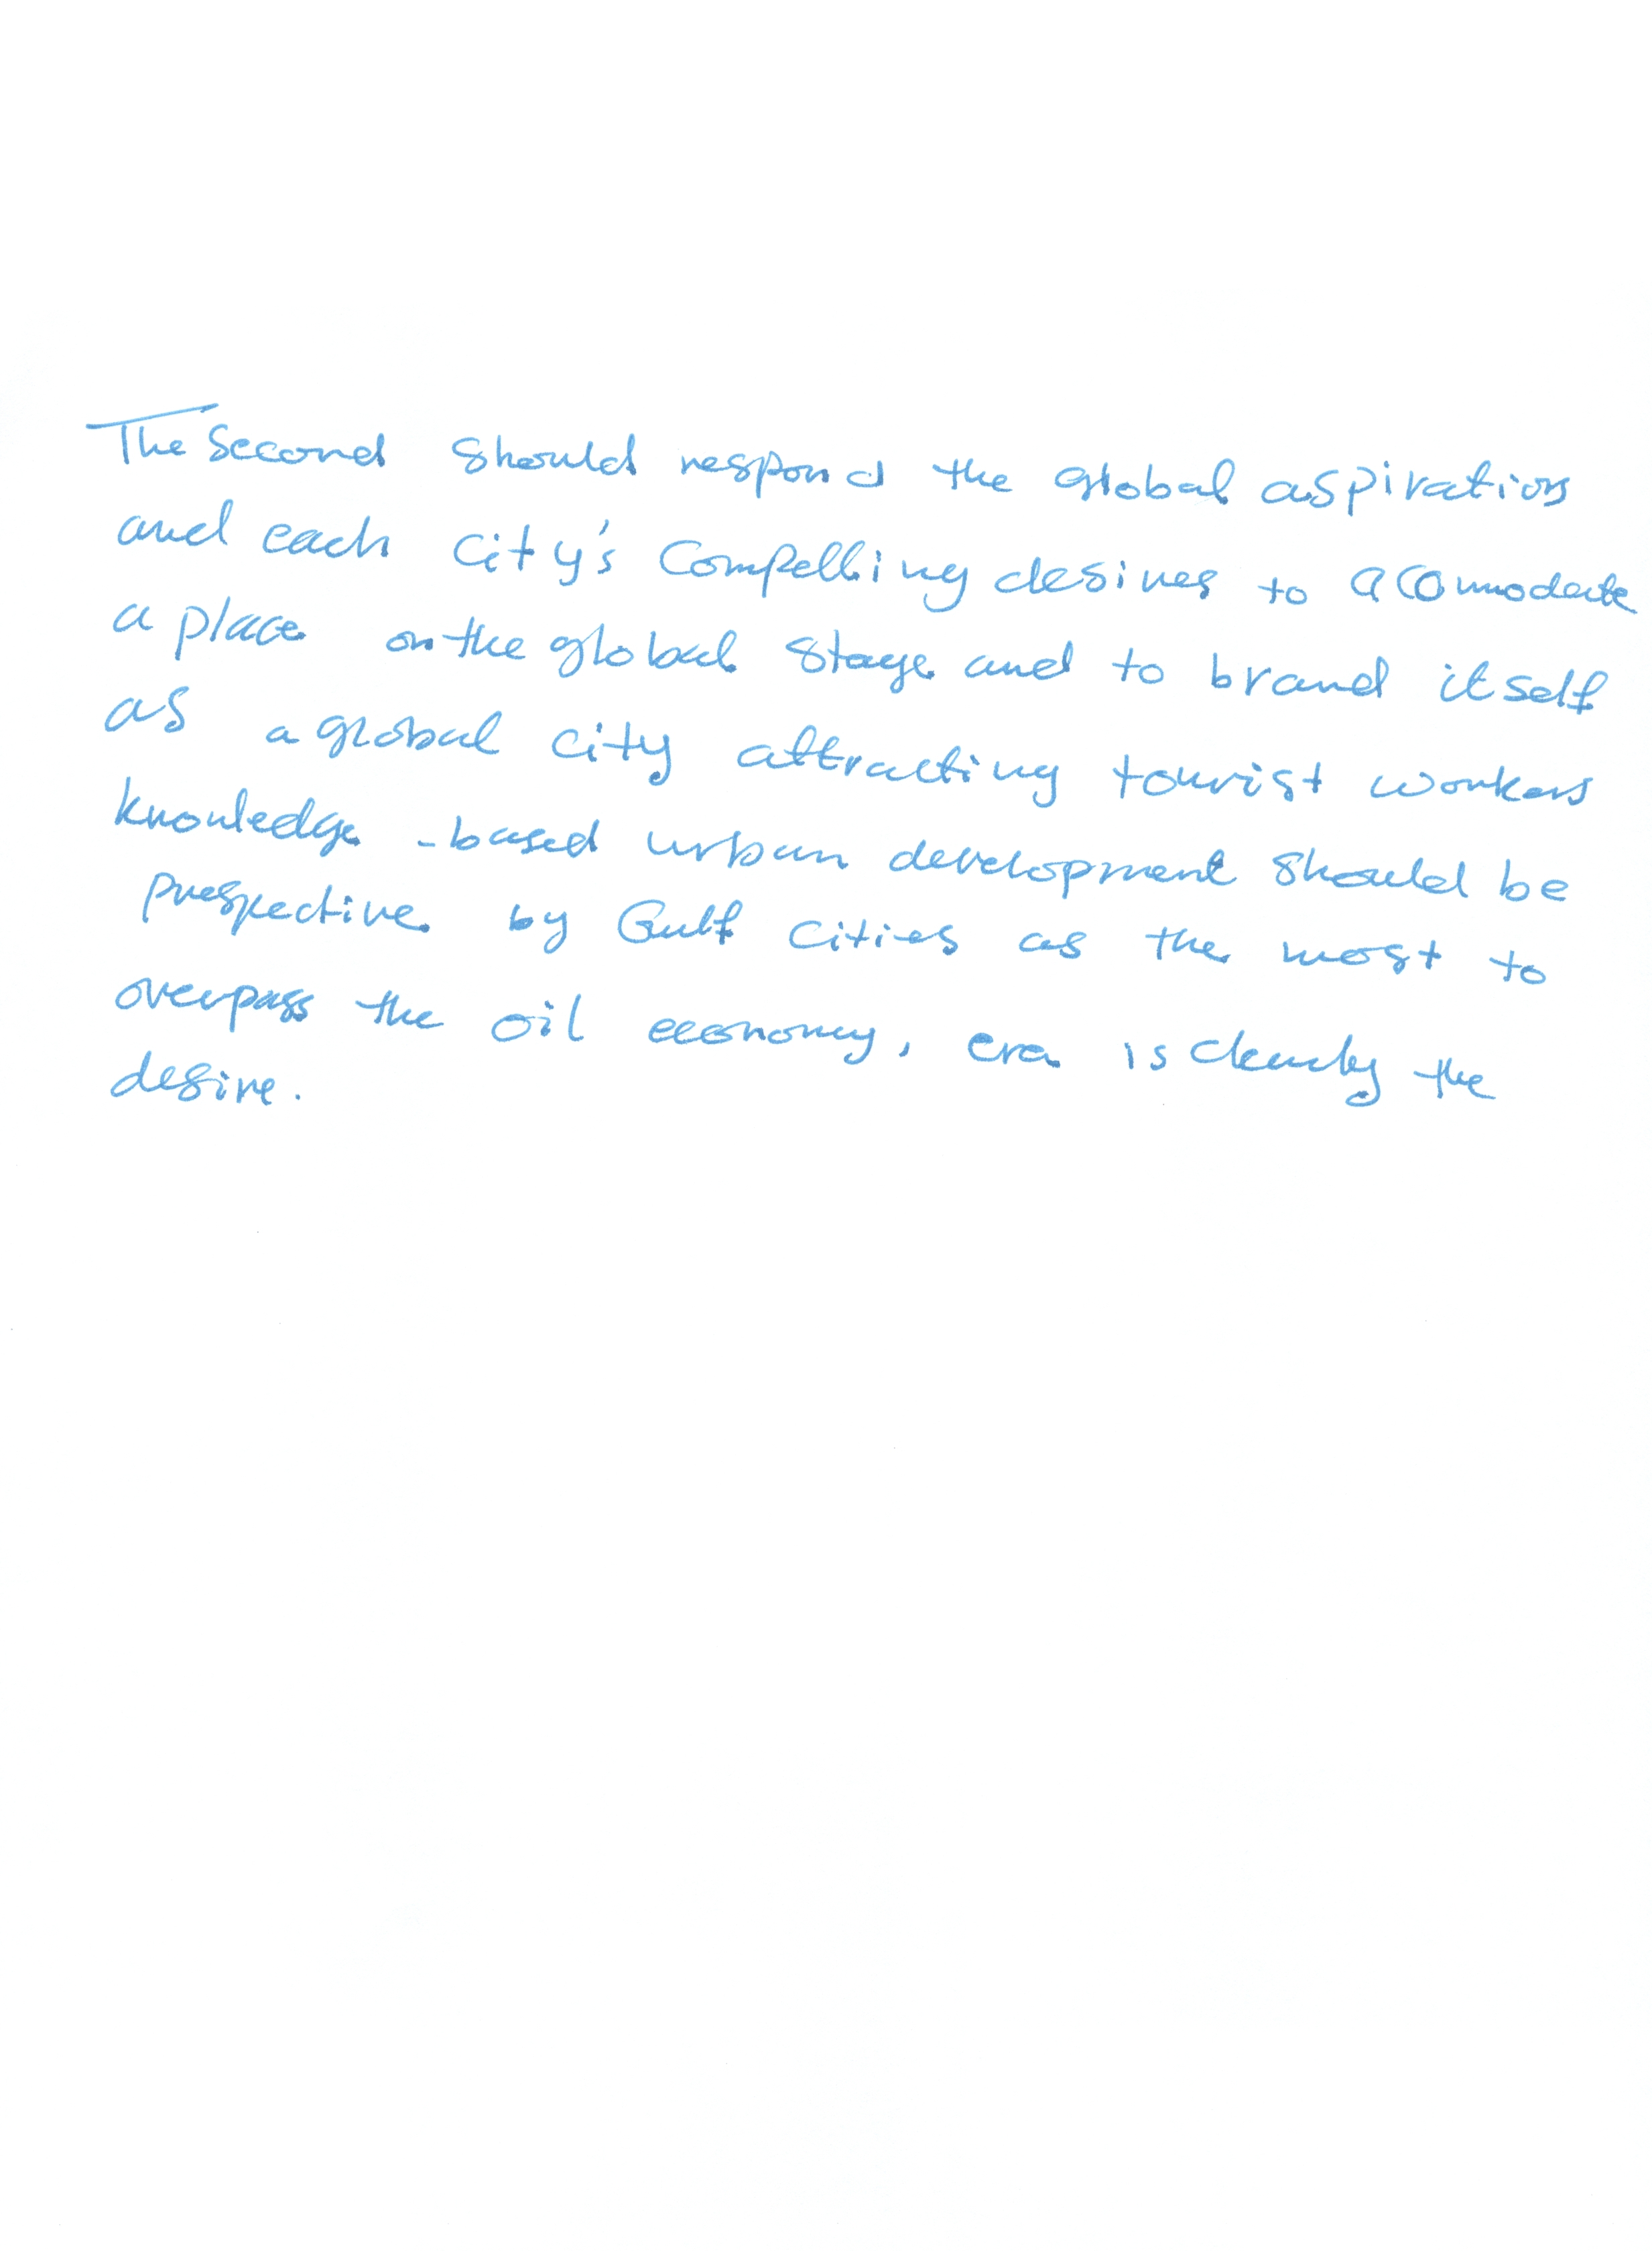 The Second Should respond the global aspirations
and each City's Compelling desires to acomodate
a place on the global stage and to brand itself
as a global city attracting tourist workers
knowledge -based urban development should be
prespective by Gulf Cities as the most to
overpass the oil economy, era is clearly the
desire.